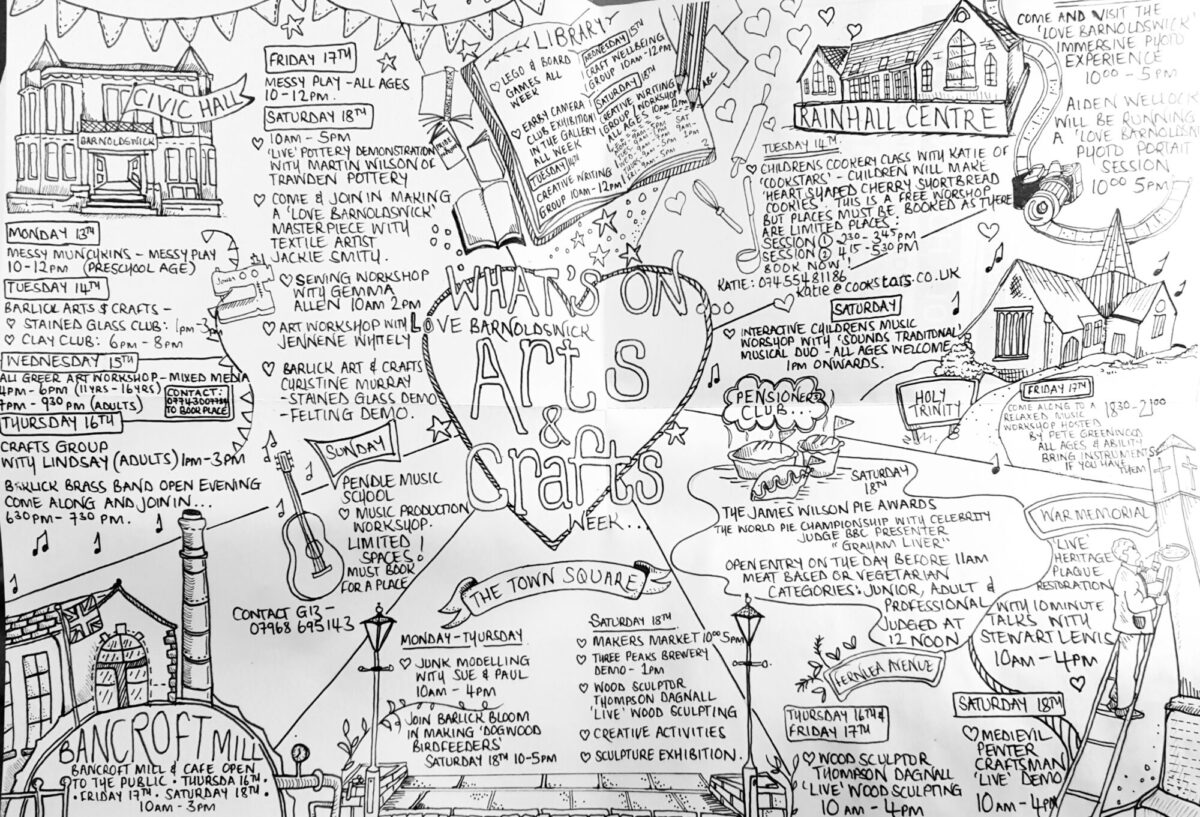 CIVIC HALL
BARNOLDSWICK
MONDAY 13TH
MESSY MUNCHKINS - MESSY PLAY
10-12PM (PRESCHOOL AGE)
TUESDAY 14TH
BARLICK ARTS & CRAFTS -
STAINED GLASS CLUB: 1pm-3pm
CLAY CLUB: 6PM - 8PM
WEDNESDAY 15TH
ALI GREER ART WORKSHOP - MIXED MEDIA
4PM - 6PM (11YRS - 16YRS)
7PM - 930 PM (ADULTS)
CONTACT:
TO BOOK PLACE
THURSDAY 16TH
CRAFTS GROUP
WITH LINDSAY (ADULTS) 1PM-3PM
BARLICK BRASS BAND OPEN EVENING
COME ALONG AND JOIN IN...
630PM - 730 PM.
FRIDAY 17TH
MESSY PLAY - ALL AGES
10-12PM.
SATURDAY 18TH
10AM - 5PM
'LIVE' POTTERY DEMONSTRATION
WITH MARTIN WILSON OF
TRAWDEN POTTERY
COME & JOIN IN MAKING
A 'LOVE BARNOLDSWICK'
MASTERPIECE WITH
TEXTILE ARTIST
JACKIE SMITH.
SEWING WORKSHOP
WITH GEMMA
ALLEN 10AM 2PM
ART WORKSHOP WITH
JENNENE WHITELY
BARLICK ART & CRAFTS
CHRISTINE MURRAY
- STAINED GLASS DEMO
- FELTING DEMO.
SUNDAY
PENDLE MUSIC
SCHOOL
MUSIC PRODUCTION
WORKSHOP.
LIMITED
SPACES!
MUST BOOK
FOR A PLACE
CONTACT GIZ -
07968 695143
LIBRARY
LEGO & BOARD
GAMES ALL
WEEK
EARBY CAMERA
CLUB EXHIBITION
IN THE GALLERY
ALL WEEK
TUESDAY 14TH
CREATIVE WRITING
GROUP 10AM-12PM
WEDNESDAY 15TH
CRAFT WELLBEING
GROUP 10AM-12PM
SATURDAY 18TH
CREATIVE WRITING
GROUP WORKSHOP
ALL AGES 10AM 12PM
ABC
WHAT'S ON
LOVE BARNOLDSWICK
Arts
&
Crafts
WEEK...
THE TOWN SQUARE
MONDAY - THURSDAY
JUNK MODELLING
WITH SUE & PAUL
10AM - 4PM
JOIN BARLICK BLOOM
IN MAKING 'DOGWOOD
BIRDFEEDERS'
SATURDAY 18TH 10-5PM
SATURDAY 18TH
MAKERS MARKET 10:00 5PM
THREE PEAKS BREWERY
DEMO - 1PM
WOOD SCULPTOR
THOMPSON DAGNALL
'LIVE' WOOD SCULPTING
CREATIVE ACTIVITIES
SCULPTURE EXHIBITION.
RAINHALL CENTRE
TUESDAY 14TH:
CHILDRENS COOKERY CLASS WITH KATIE OF
'COOKSTARS' - CHILDREN WILL MAKE
HEART SHAPED CHERRY SHORTBREAD
COOKIES. THIS IS A FREE WORSHOP,
BUT PLACES MUST BE BOOKED AS THERE
ARE LIMITED PLACES.
SESSION 1 230 - 345PM
SESSION 2 415 - 530PM
BOOK NOW!
KATIE: 07455481186
katie@cookstars.co.uk
SATURDAY
INTERACTIVE CHILDRENS MUSIC
WORSHOP WITH 'SOUNDS TRADITIONAL'
MUSICAL DUO - ALL AGES WELCOME
1PM ONWARDS.
COME AND VISIT THE
'LOVE BARNOLDSWICK'
IMMERSIVE PHOTO
EXPERIENCE
10:00 - 5PM
AIDEN WELLOCK
WILL BE RUNNING
A 'LOVE BARNOLDSWICK'
PHOTO PORTAIT
SESSION
10:00 5PM
HOLY
TRINITY
FRIDAY 17TH
COME ALONG TO A
RELAXED MUSIC
WORKSHOP HOSTED
BY PETE GREENWOOD
ALL AGES & ABILITY
BRING INSTRUMENTS
IF YOU HAVE
THEM
1830-2100
PENSIONERS
CLUB...
SATURDAY
18TH
THE JAMES WILSON PIE AWARDS
THE WORLD PIE CHAMPIONSHIP WITH CELEBRITY
JUDGE BBC PRESENTER
"GRAHAM LIVER"
OPEN ENTRY ON THE DAY BEFORE 11AM
MEAT BASED OR VEGETARIAN
CATEGORIES: JUNIOR, ADULT &
PROFESSIONAL
JUDGED AT
12 NOON
WAR MEMORIAL
'LIVE'
HERITAGE
PLAQUE
RESTORATION
WITH 10 MINUTE
TALKS WITH
STEWART LEWIS
10AM - 4PM
FERNLEA AVENUE
THURSDAY 16TH &
FRIDAY 17TH
WOOD SCULPTOR
THOMPSON DAGNALL
'LIVE' WOOD SCULPTING
10AM - 4PM
SATURDAY 18TH
MEDIEVIL
PEWTER
CRAFTSMAN
'LIVE' DEMO
10AM - 4PM
BANCROFT MILL
BANCROFT MILL & CAFE OPEN
TO THE PUBLIC - THURSDA 16TH.
FRIDAY 17TH. SATURDAY 18TH.
10AM - 3PM